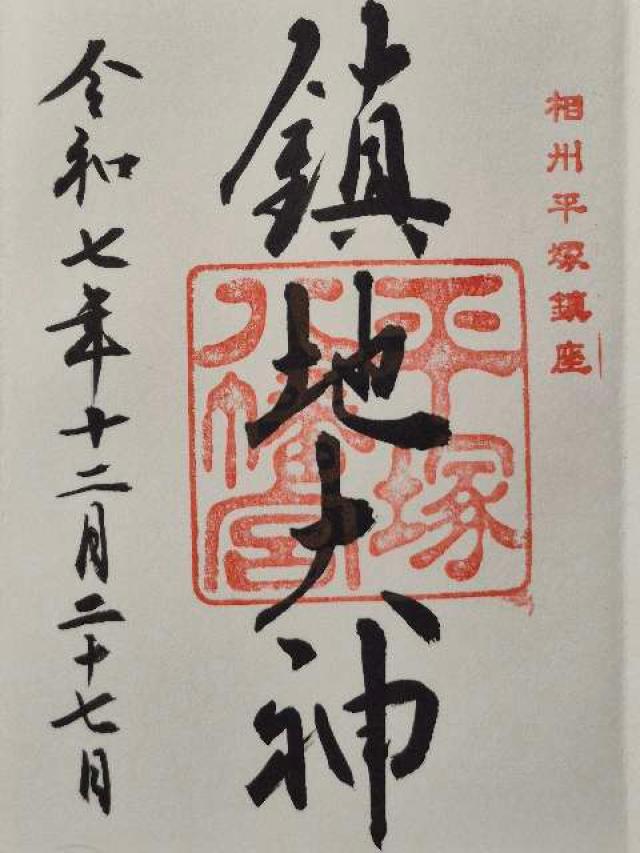 相州平塚鎮座
鎮地大神
平塚
八幡宮
令和七年十二月二十七日